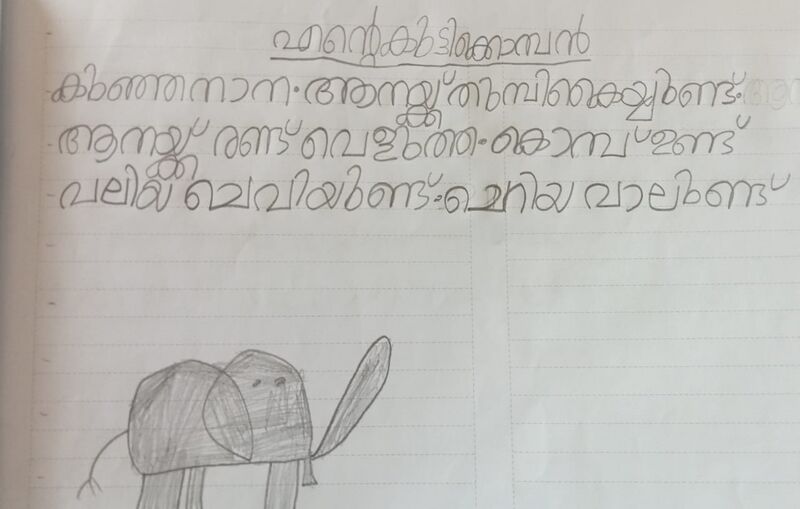 എന്റെകുട്ടിക്കൊമ്പൻ
കുഞ്ഞനാന. ആനയ്ക്ക് തുമ്പികൈയ്യുണ്ട്.
ആനയ്ക്ക് രണ്ട് വെളുത്ത. കൊമ്പ് ഉണ്ട്
വലിയ ചെവിയുണ്ട്. ചെറിയ വാലുണ്ട്